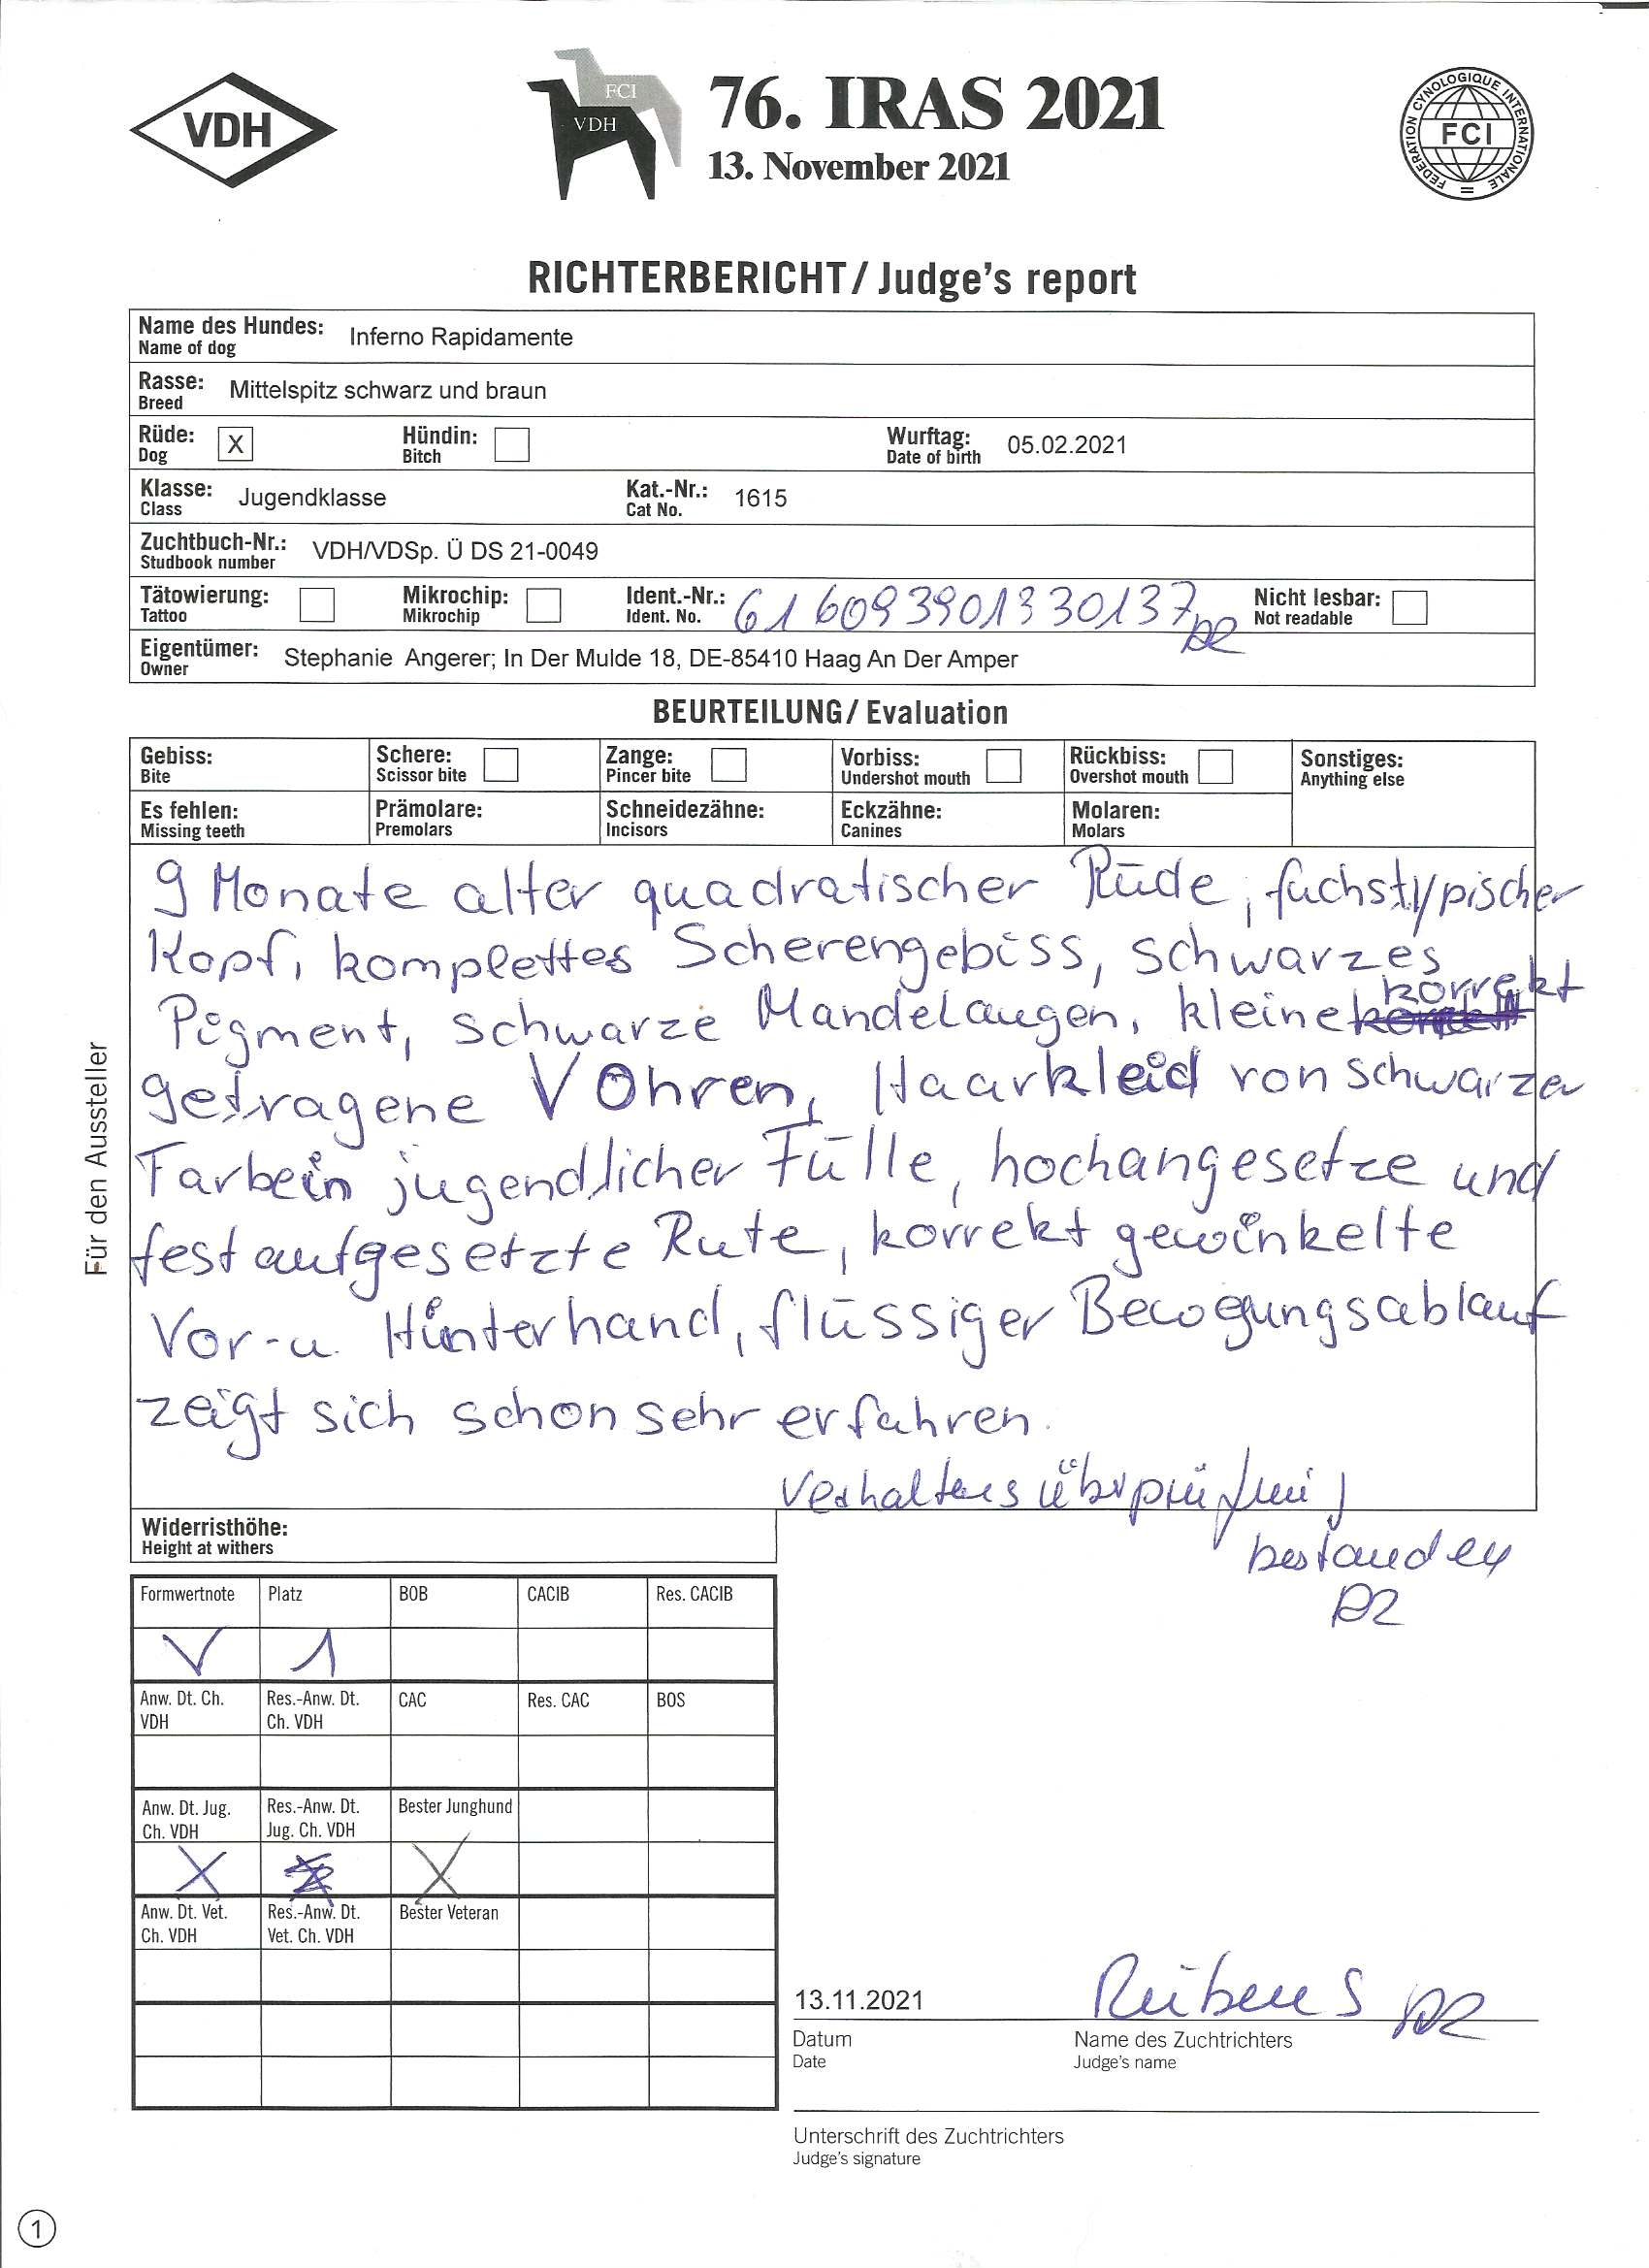 VDH
FCI
VDH
76. IRAS 2021
13. November 2021
FEDERATION CYNOLOGIQUE INTERNATIONALE
FCI
RICHTERBERICHT / Judge's report
Name des Hundes: Inferno Rapidamente
Name of dog
Rasse: Mittelspitz schwarz und braun
Breed
Rüde: X Hündin: Wurftag: 05.02.2021
Dog Bitch Date of birth
Klasse: Jugendklasse Kat.-Nr.: 1615
Class Cat No.
Zuchtbuch-Nr.: VDH/VDSp. Ü DS 21-0049
Studbook number
Tätowierung: Mikrochip: Ident.-Nr.: 616093901330137 Nicht lesbar:
Tattoo Mikrochip Ident. No. Not readable
Eigentümer: Stephanie Angerer; In Der Mulde 18, DE-85410 Haag An Der Amper
Owner
BEURTEILUNG / Evaluation
Gebiss: Schere: Zange: Vorbiss: Rückbiss: Sonstiges:
Bite Scissor bite Pincer bite Undershot mouth Overshot mouth Anything else
Es fehlen: Prämolare: Schneidezähne: Eckzähne: Molaren:
Missing teeth Premolars Incisors Canines Molars
9 Monate alter quadratischer Rüde, fuchstypischer
Kopf, komplettes Scherengebiss, schwarzes
Pigment, schwarze Mandelaugen, kleine korrekt
getragene V Ohren, Haarkleid von schwarzer
Farbe in jugendlicher Fülle, hochangesetze und
fest aufgesetzte Rute, korrekt gewinkelte
Vor- u. Hinterhand, flüssiger Bewegungsablauf
zeigt sich schon sehr erfahren.
Verhaltensüberprüfung
bestanden
Für den Aussteller
Widerristhöhe:
Height at withers
Formwertnote Platz BOB CACIB Res. CACIB
V 1
Anw. Dt. Ch. Res.-Anw. Dt. CAC Res. CAC BOS
VDH Ch. VDH
Anw. Dt. Jug. Res.-Anw. Dt. Bester Junghund
Ch. VDH Jug. Ch. VDH
X X
Anw. Dt. Vet. Res.-Anw. Dt. Bester Veteran
Ch. VDH Vet. Ch. VDH
13.11.2021 Rübens
Datum Name des Zuchtrichters
Date Judge's name
Unterschrift des Zuchtrichters
Judge's signature
1